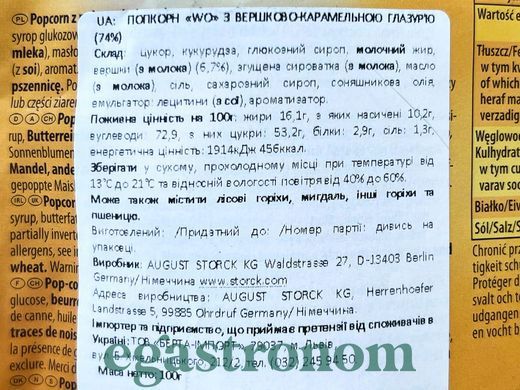 UA: ПОПКОРН «WO» З ВЕРШКОВО-КАРАМЕЛЬНОЮ ГЛАЗУР'Ю
(74%)
Склад: цукор, кукурудза, глюкозний сироп, молочний жир,
вершки (з молока) (6,7%), згущена сироватка (з молока), масло
(з молока), сіль, сахарозний сироп, соняшникова олія,
емульгатор: лецитини (з сої), ароматизатор.
Поживна цінність на 100г: жири 16,1г, з яких насичені 10,2г,
вуглеводи: 72,9, з них цукри: 53,2г, білки: 2,9г, сіль: 1,3г,
енергетична цінність: 1914кДж 456ккал.
Зберігати у сухому, прохолодному місці при температурі від
13°C до 21°C та відносній вологості повітря від 40% до 60%.
Може також містити лісові горіхи, мигдаль, інші горіхи та
пшеницю.
Виготовлений: /Придатний до: /Номер партії: дивись на
упаковці.
Виробник: AUGUST STORCK KG Waldstrasse 27, D-13403 Berlin
Germany/ Німеччина www.storck.com
Адреса виробництва: AUGUST STORCK KG, Herrenhoefer
Landstrasse 5, 99885 Ohrdruf Germany/ Німеччина.
Імпортер та підприємство, що приймає претензії від споживачів в
Україні: ТОВ «БЕРТА-ІМПОРТ» 79037, м. Львів,
вул. Б. Хмельницького, 212/2, тел. (032) 245 94 50.
Маса нетто: 100г
egastronom
PL Popcorn
syrop glukozowy
mleka), masło
(z soi), aromat
pszenicę. Po
lub części ziaren
D A CH Pop
rup, Butterrei
Sonnenblumen
Mandel, ande
gepoppte Mais
IRL UK Pop
syrup, butterfat
partially inverte
allergens, see in
wheat. Warning
F CH Pop-co
glucose, beurre
de canne, huile
traces de noise
la présence de
excessive
Wartość e
Tłuszcz/Fe
w tym kw
of which
heraf mæ
varav mä
Węglowod
Kulhydrate
w tym cu
varav soc
Białko/Eiw
Sól/Salz/S
Chronić prz
tigkeit schü
Protéger de
svalt och to
udsat for di
en vocht be